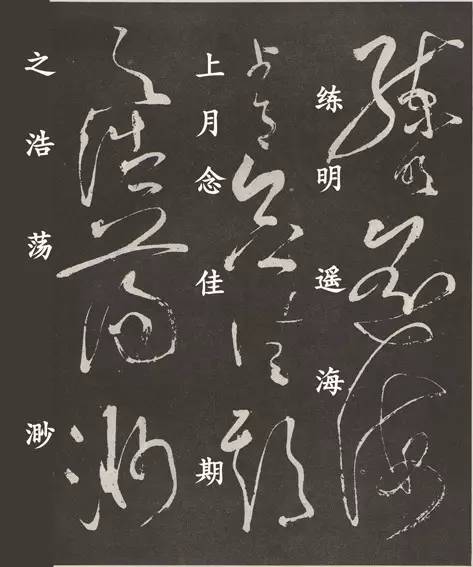 练明遥海
上月念佳期
之浩荡渺